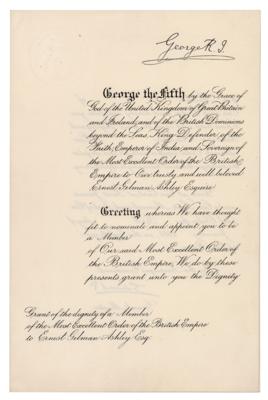 George R. I.
George the Fifth by the Grace of
God of the United Kingdom of Great Britain
and Ireland, and of the British Dominions
beyond the Seas King, Defender of the
Faith, Emperor of India, and Sovereign of
the Most Excellent Order of the British
Empire to Our trusty and well beloved
Ernest Gelman Ashley Esquire
Greeting whereas We have thought
fit to nominate and appoint you to be
a Member
of Our said Most Excellent Order of
the British Empire, We do by these
presents grant unto you the Dignity
Grant of the dignity of a Member
of the Most Excellent Order of the British Empire
to Ernest Gelman Ashley Esq